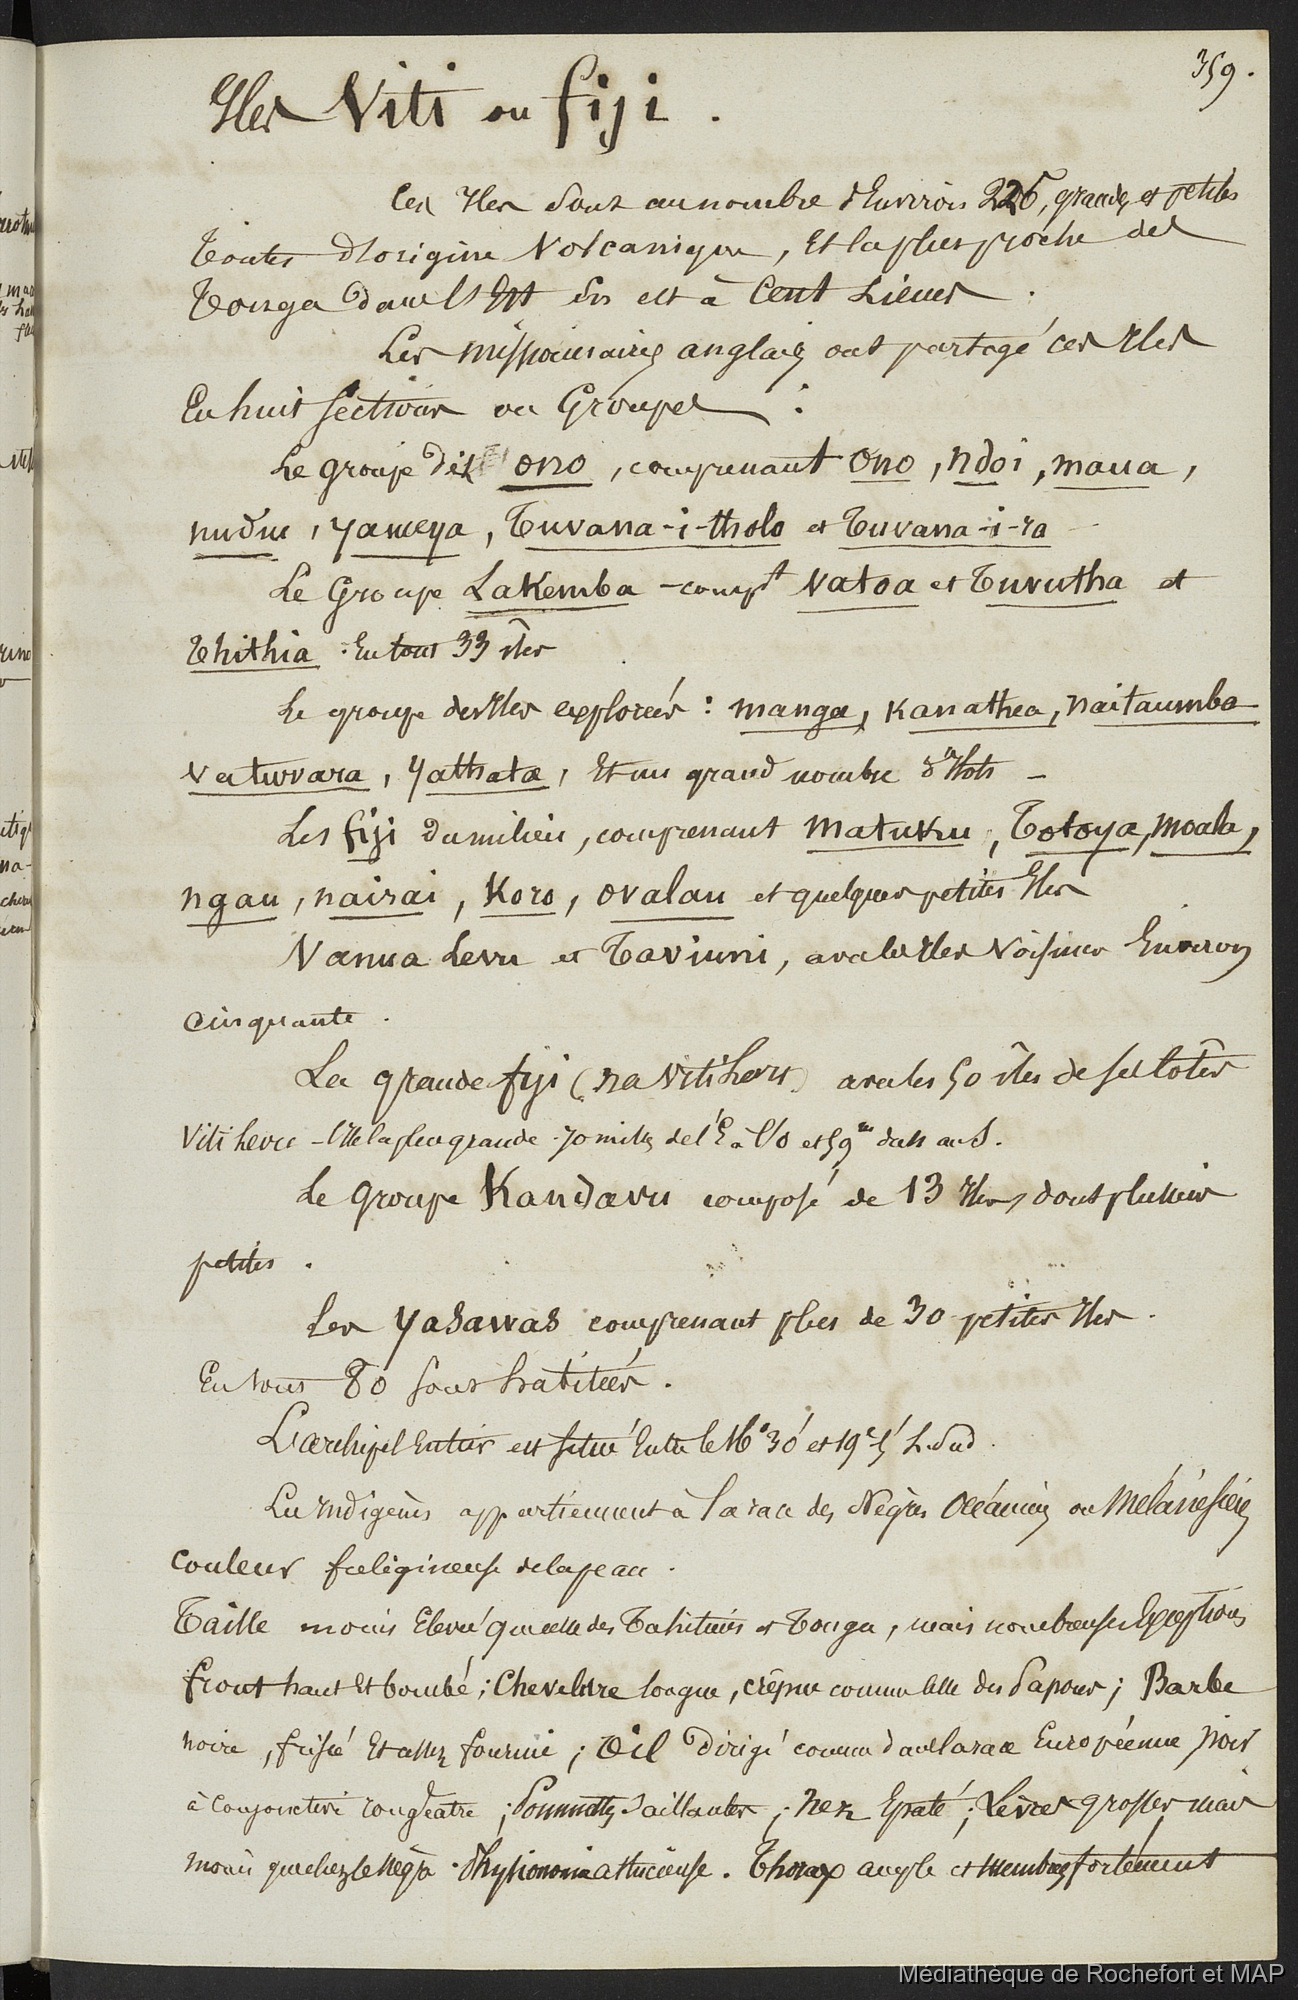 359.
Iles Viti ou fiji.
Ces Iles sont au nombre d'Environ 225, grandes et petites
Toutes d'origine Volcanique, Et la plus proche des
Tonga dans l'Est en est à Cent Lieues.
Les missionnaires anglais ont partagé ces Iles
En huit Sections ou Groupes :
Le groupe dit ono, comprenant Ono, Ndoi, mana,
nudu, yameya, Tuvana-i-tholo et Tuvana-i-ra
Le Groupe Lakemba - compt Vatoa et Tuvutha et
Thithia. En tout 33 îles
Le groupe des Iles explorées : manga, Kanathea, Naitaumba
Vatuvara, yathata, Et un grand nombre d'Ilots -
Les fiji du milieu, comprenant Matuku, Totoya, Moala,
ngau, nairai, Koro, ovalau et quelques petites Iles
Vanua Levu et Taviuni, avec les Iles Voisines Environ
Cinquante.
La grande fiji (na Viti Levu) avec les 50 îles de ses Côtes
Viti Levu - l'Ile la plus grande. 70 milles de l'E à l'O et 59m du N au S.
Le groupe Kandavu composé de 13 Iles, dont plusieurs
petites.
Les yasawas comprenant plus de 30 petites Iles.
En tout 80 sont habitées.
L'archipel Entier est situé Entre le 16° 30' et 19° 5' L. Sud.
Les Indigènes appartiennent à la race des Nègres Océaniens ou Mélanésiens
Couleur fuligineuse de la peau.
Taille moins Elevée que celle des Tahitiens et Tonga, mais nombreuses Exceptions
front haut Et bombé ; Chevelure longue, crêpue comme celle des Papous ; Barbe
noire, frisée Et assez fournie ; Oeil dirigé comme dans la race Européenne noir
à Conjonctive rougeâtre ; Pommettes Saillantes ; Nez Epaté ; Lèvres grosses mais
moins que chez le Nègre. Physionomie astucieuse. Thorax ample et membres fortement
Médiathèque de Rochefort et MAP